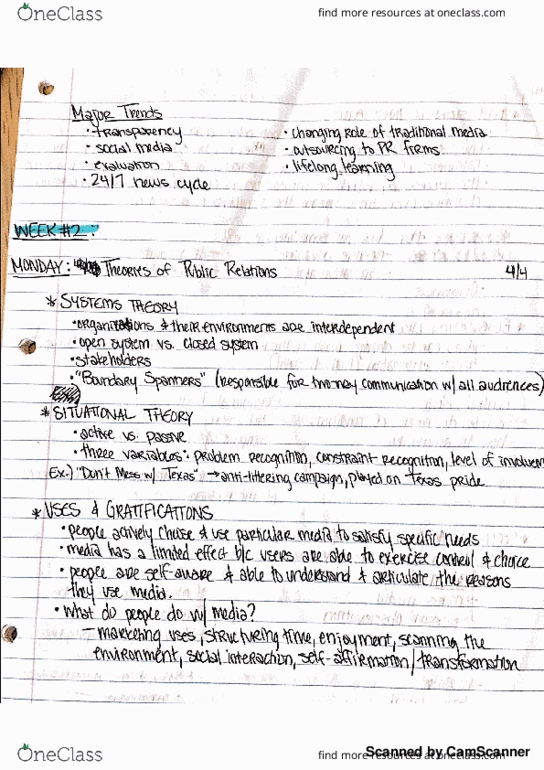 OneClass
find more resources at oneclass.com
Major Trends
• transparency
• social media
• evaluation
• 24/7 news cycle
• changing role of traditional media
• outsourcing to PR firms
• lifelong learning
WEEK #2:
MONDAY: Theories of Public Relations 4/4
* SYSTEMS THEORY
• organizations & their environments are interdependent
• open system vs. closed system
• stakeholders
• "Boundary Spanners" (responsible for two-way communication w/ all audiences)
* SITUATIONAL THEORY
• active vs. passive
• three variables: problem recognition, constraint recognition, level of involvem
Ex.) "Don't Mess w/ Texas" → anti-littering campaign, played on Texas pride
* USES & GRATIFICATIONS
• people actively choose & use particular media to satisfy specific needs
• media has a limited effect b/c users are able to exercise control & choice
• people are self-aware & able to understand & articulate the reasons
they use media.
• What do people do w/ media?
– marketing uses, structuring time, enjoyment, scanning the
environment, social interaction, self-affirmation/transformation
OneClass
find more resources at oneclass.com
Scanned by CamScanner